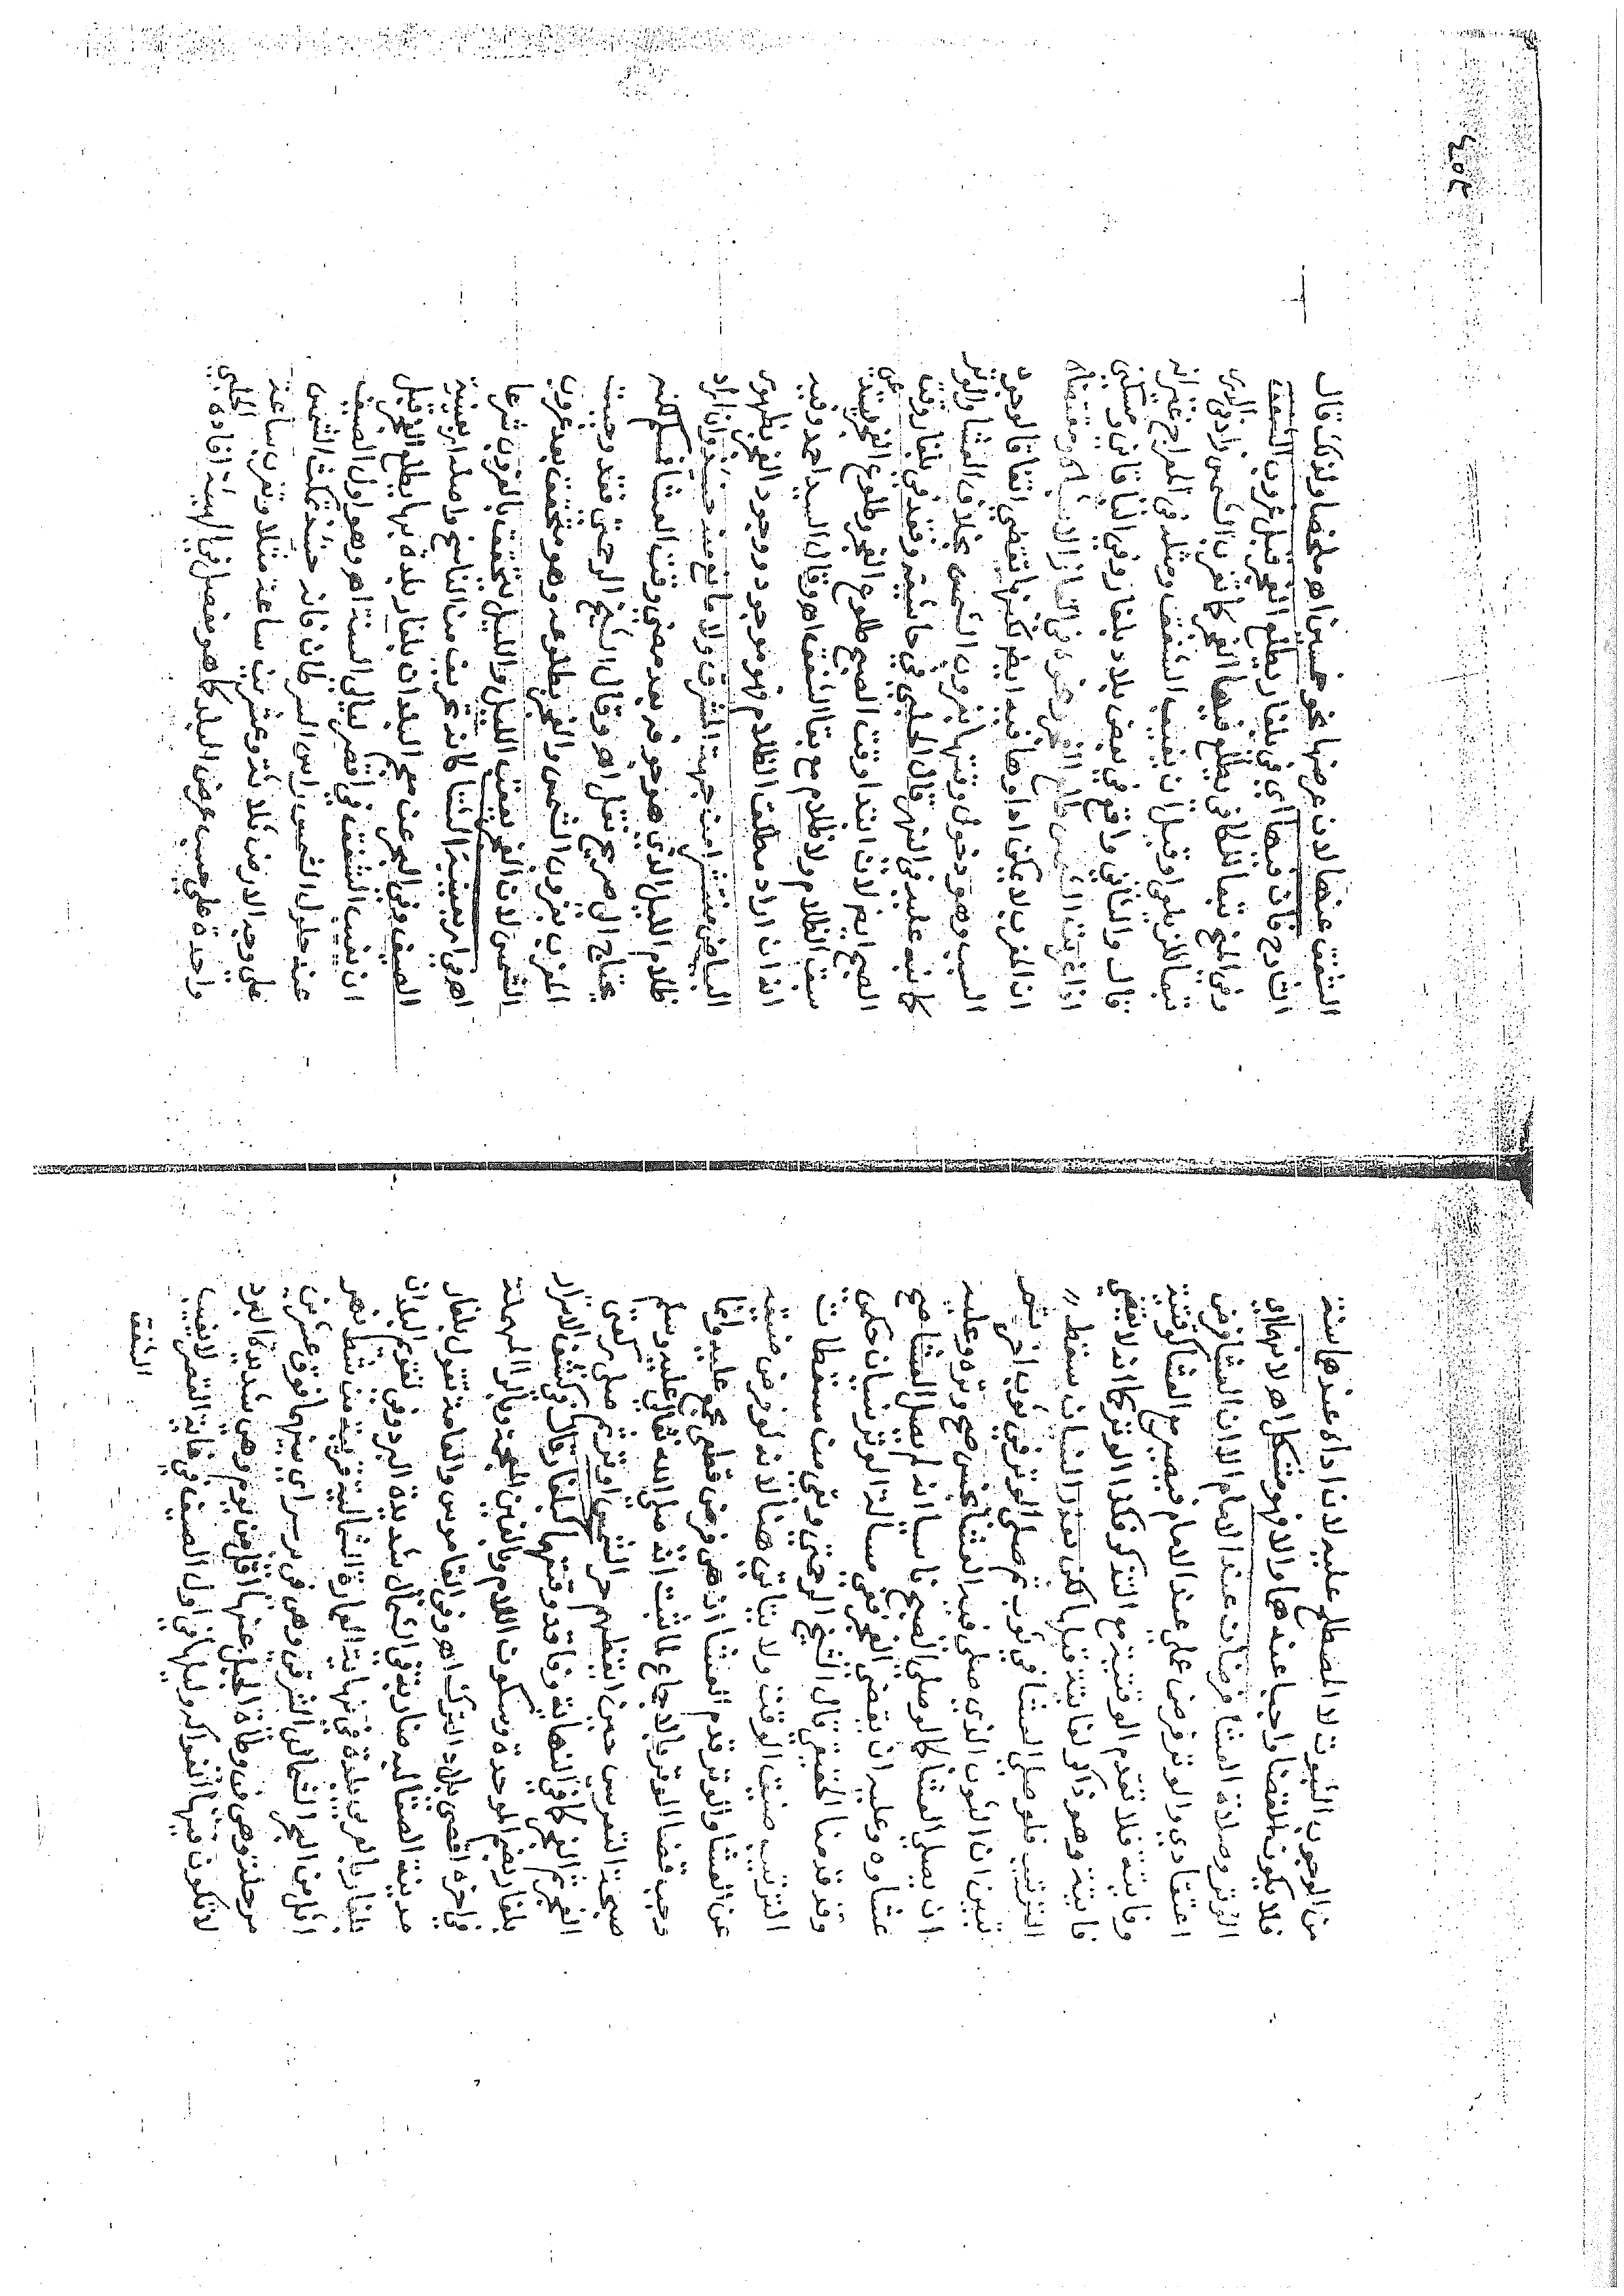 من الوجوب الثبوت لا المصطلح عليه لان اداه عندها سنة
فلا يكون القضا واجبا عندها والا فهو مشكل اه لانهما اي
الوتر وصلاة العشا فرضان عند الامام الا ان العشا فرض
اعتقادي والوتر فرض عملي عند الامام فيصير مع العشا كوقتية
وفايتة فلا تقدم الوقتية مع التذكر فكذا الوتر كما انه لا تقضي
فايتة وهو ذاكر لفايتة قبلها لكن بعذر النسيان يسقط
الترتيب فلو صلى العشا في ثوب ثم صلى الوتر في ثوب اخر ثم
تبين ان الثوب الذي صلى فيه العشا نجس صح وتره وعليه
ان يصلي العشا كما لو صلى الصبح ناسيا انه لم يصل العشا صح
عشاوه وعليه ان يقضي الفجر ففي مسالة الوتر نسيان حكمي
وقد قدمنا الحقيقي قال الشيخ الرحمتي وبقي من مسقطات
الترتيب ضيق الوقت ولا يتاتي هنا لانه لو فرض ضيقه
عن العشا والوتر قدم العشا اذ هي فرض قطعي مجمع عليه وانما
وجب قضا الوتر بالاجماع لما ثبت انه صلى الله تعالى عليه وسلم
صبيحة التعريس حين ايقظهم حر الشمس اوتر ثم صلى ركعتي
الفجر ثم الفجر كما في النهاية وفاقد وقتهما كبلغار قال في كشف الاسرار
بلغار بضم الموحدة وسكون اللام وبالغين المعجمة وبالرا المهملة
في اخره اقصى بلاد الترك اه وفي القاموس والعامة تقول بلغار
مدينة الصقالبة ضاربة في الشمال شديدة البرد وفي تقويم البلدان
بلغار بالعربي بلدة في نهاية العمارة الشمالية قريبة من شط نهر
اتل من البر الشمالي الشرقي وهي في بر سراي بينهما فوق عشرين
مرحلة وهي في وطاة الجبل عنها اقل من يوم وهي شديدة البرد
لا تكون فيها الفواكه وليلها في اول الصيف في غاية القصر لا يغيب
الشفق
الشفق عنها لان عرضها نحو خمسين اه ملخصا ولذلك قال
الشارح فان فيها اي في بلغار يطلع الفجر قبل غروب الشفق
وفي المنح تبعا للكافي يطلع فيها الفجر كما تغرب الشمس زاد في الدرر
تبعا للزيلعي او قبل ان يغيب الشفق ومثله في المعراج غير انه
قال والثاني واقع في بعض بلاد بلغار وفي الخاقاني
اذا غربت الشمس طلع الفجر
ان المغرب لا يمكن اداوها فيه ايضا لكنها تقضي اتفاقا لوجود
السبب وهو دخول وقتها بغروب الشمس بخلاف العشا والوتر
كما نبه عليه في النهر قال الحلبي في حاشيته وقته في بلغار وقت
الصبح ايضا لان ابتدا وقت الصبح طلوع الفجر وطلوع الفجر يستدعي
سبق الظلام ولا ظلام مع بقا الشفق اه وقال السيد احمد وفيه
انه ان اراد مطلق الظلام فهو موجود ووجود الفجر بظهور
البياض منتشرا من جهة المشرق ولا مانع منه حينئذ وان اراد
ظلام الليل الذي هو اخره بعد مضي وقت العشا فمسلم لكنه
يحتاج الى صريح نقل اه وقال الشيخ الرحمتي فقد وجبت
المغرب بغروب الشمس والفجر بطلوعه وهو متحقق بعد غروب
الشمس لان الفجر يعقب الليل والليل يتحقق بالغروب شرعا
اه في اربعينية الشتا كانه تحريف من الناسخ واصله اربعينية
الصيف وفي البحر عن مجمع البلدان بلغار بلدة بها يطلع الفجر قبل
ان يغيب الشفق في اقصر ليالي السنة اه وهو اول الصيف
عند حلول الشمس براس السرطان فانه حينئذ تمكث الشمس
على وجه الارض ثلاثة وعشرين ساعة مثلا وتغرب ساعة
واحدة على حسب عرض البلد كما هو مفصل في الهيئة افاده الحلبي